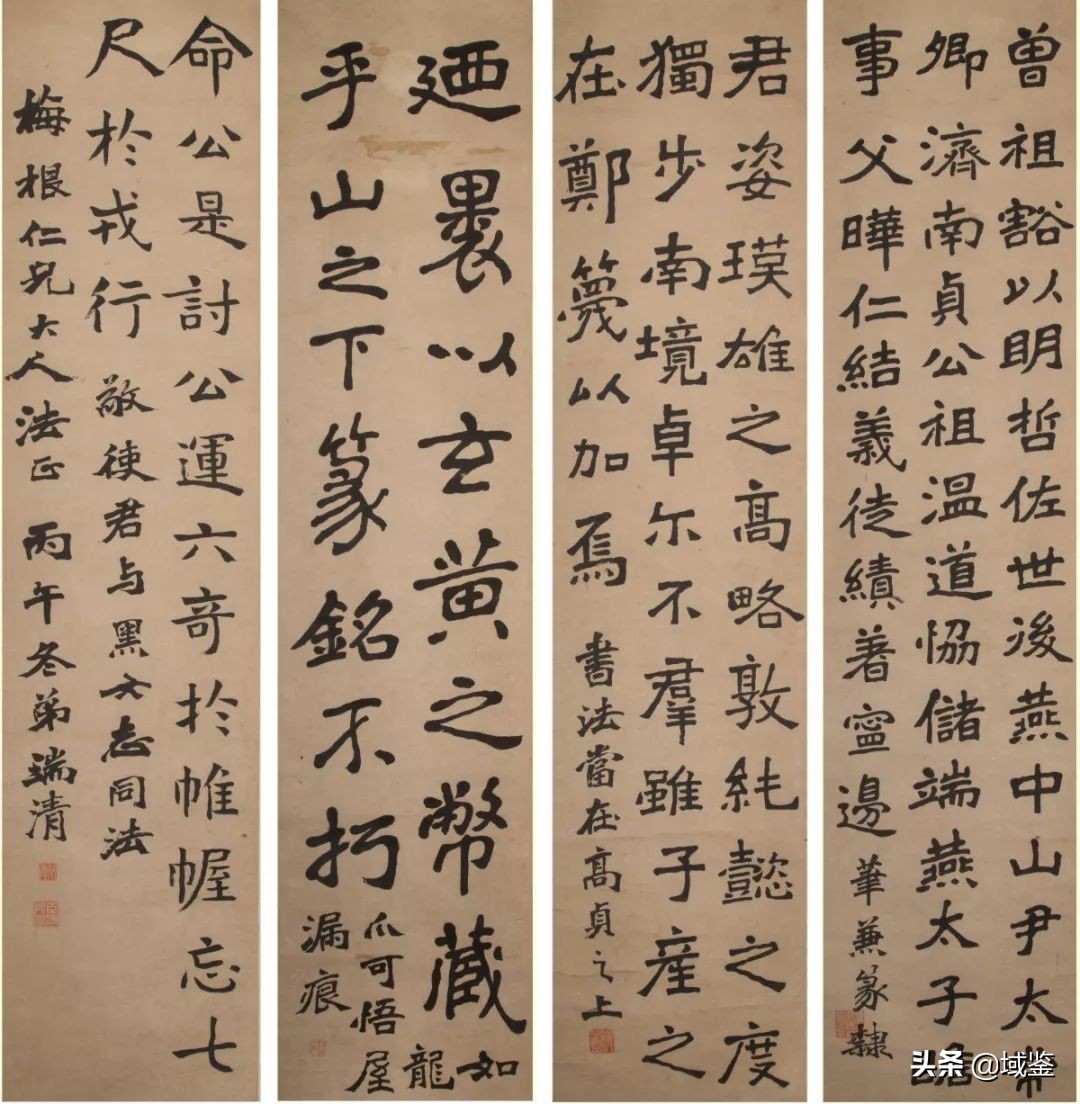 曾祖豁以明哲佐世後燕中山尹太常
卿濟南貞公祖溫道恊儲端燕太子詹
事父曄仁結義徒績著寧邊 筆兼篆隸
君姿瑛雄之高略敦純懿之度
獨步南境卓尓不羣雖子產之
在鄭篾以加焉 書法當在高貞之上
廼裹以玄黃之幣藏
乎山之下篆銘不朽
如
龍
爪可悟屋
漏痕
命公是討公運六奇於帷幄忘七
尺於戎行 敬使君与黑女志同法
梅根仁兄大人法正 丙午冬弟瑞清
头条 @域鉴